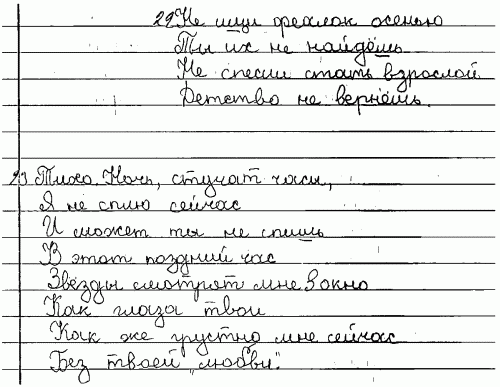 22 Не ищи фиалок осенью
Ты их не найдёшь
Не спеши стать взрослой
Детство не вернёшь.
23 Тихо. Ночь, стучат часы,
Я не сплю сейчас
И может ты не спишь
В этот поздний час
Звёзды смотрят мне в окно
Как глаза твои
Как же грустно мне сейчас
Без твоей "любви".